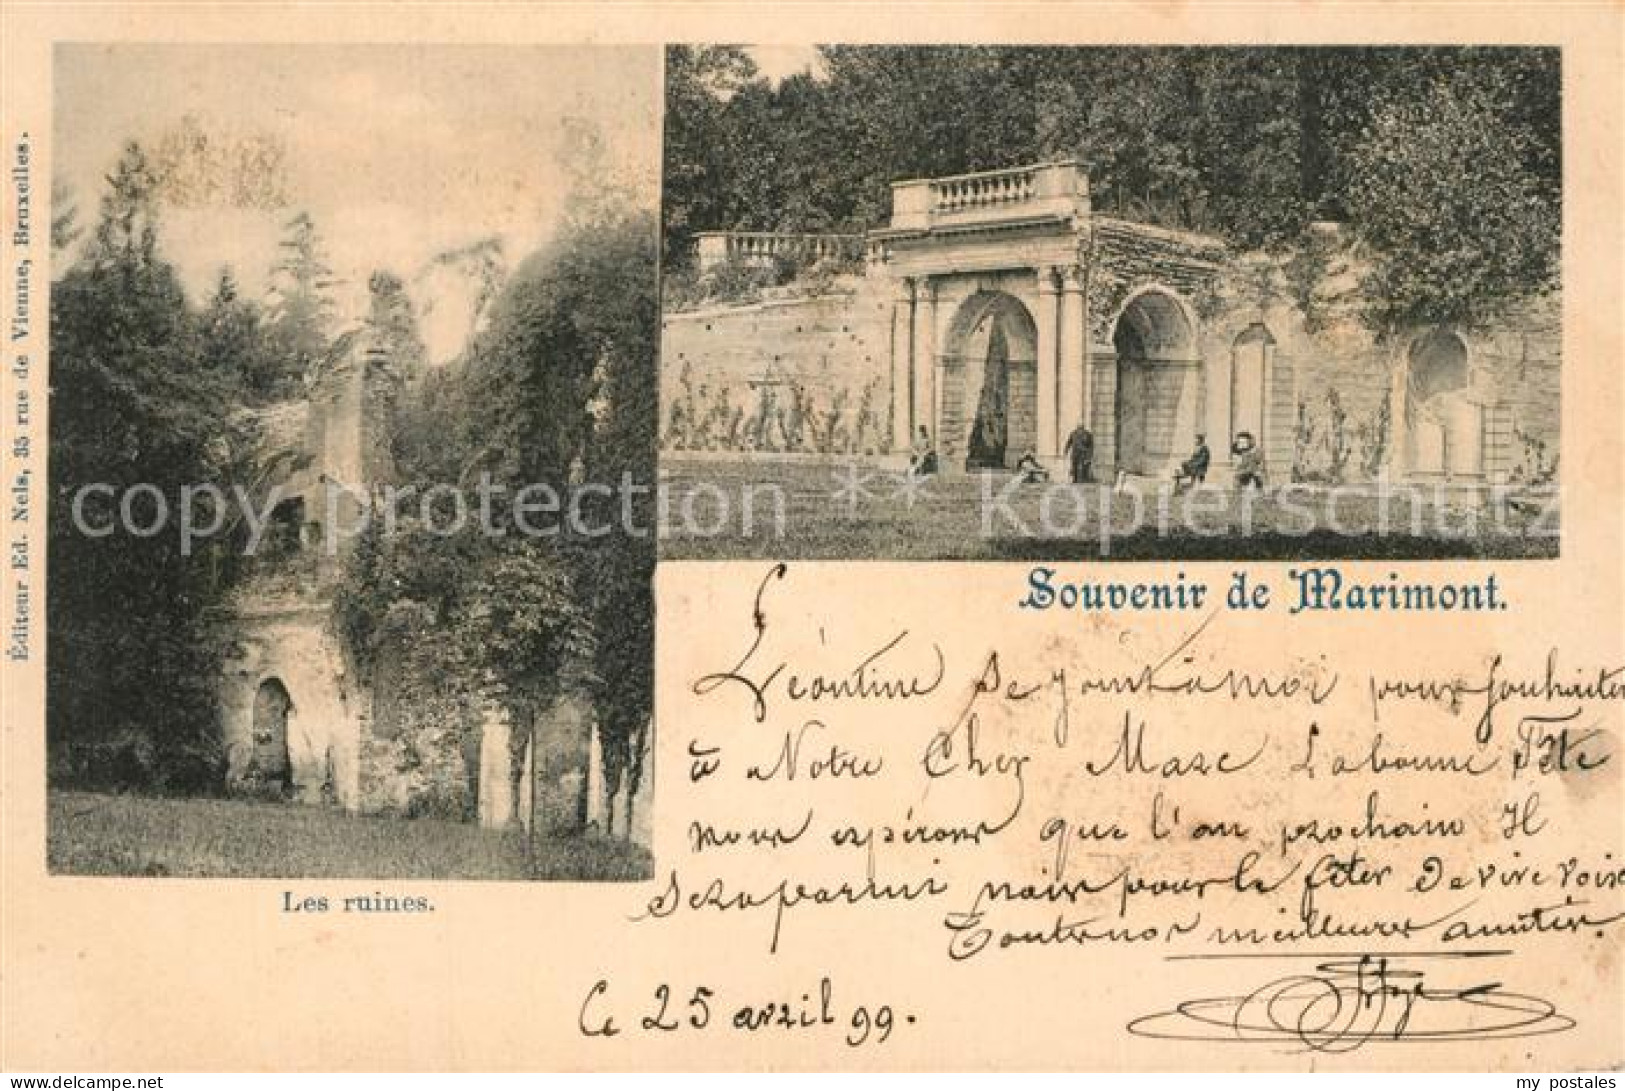 Éditeur Ed. Nels, 35 rue de Vienne, Bruxelles.
Souvenir de Marimont.
Les ruines.
Léontine se joint à moi pour souhaiter
à Notre Cher Marc La bonne Fête
nous espérons que l'an prochain Il
sera parmi nous pour le fêter De vive voix
Toutes nos meilleures amitiés.
Ce 25 avril 99.
copy protection ** Kopierschutz
my postales